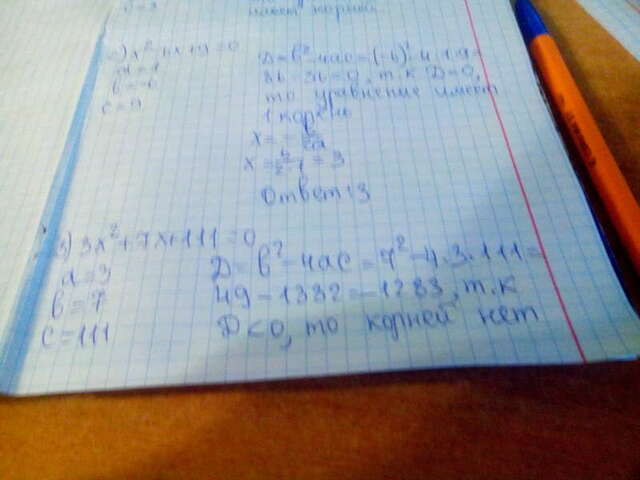 имеет корней
2) x²-6x+9=0
a=1
b=-6
c=9
D=b²-4ac=(-6)²-4·1·9=
36-36=0, т.к D=0,
то уравнение имеет
1 корень
x=-b/2a
x=6/2·1=3
Ответ:3
3) 3x²+7x+111=0
a=3
b=7
c=111
D=b²-4ac=7²-4·3·111=
49-1332=-1283, т.к
D<0, то корней нет